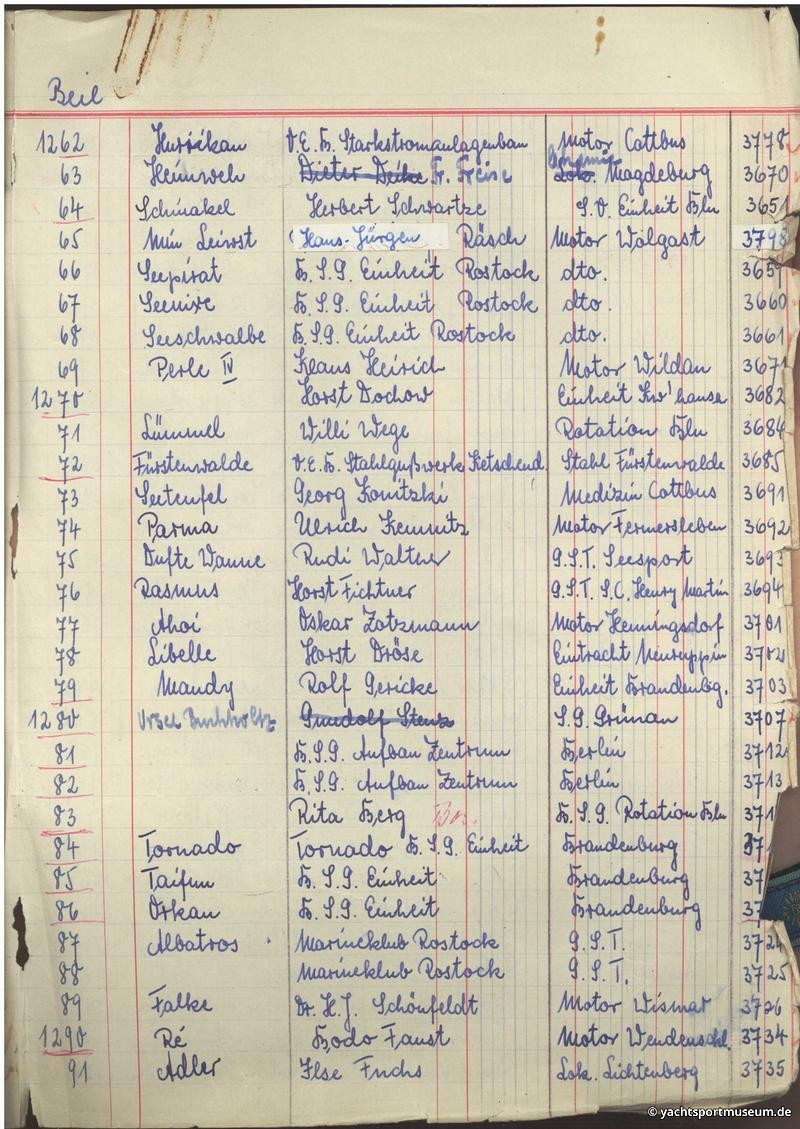 Beil
1262 Hurrikan V.E.B. Starkstromanlagenbau Motor Cottbus 3778
63 Heimweh Dieter Deike Fr. Freise Dynamo Lok. Magdeburg 3670
64 Schnakel Herbert Schwartze S.V. Einheit Bln 3651
65 Min Leiwst Hans-Jürgen Räsch Motor Wolgast 3798
66 Seepirat B.S.G. Einheit Rostock dto. 3659
67 Seenixe B.S.G. Einheit Rostock dto. 3660
68 Seeschwalbe B.S.G. Einheit Rostock dto. 3661
69 Perle IV Klaus Heirich Motor Wildau 3671
1270 Horst Dochow Einheit Kw'hausen 3682
71 Lümmel Willi Wege Rotation Bln 3684
72 Fürstenwalde V.E.B. Stahlgußwerk Ketschend. Stahl Fürstenwalde 3685
73 Seeteufel Georg Konitzki Medizin Cottbus 3691
74 Parma Ulrich Kemnitz Motor Fermersleben 3692
75 Dufte Wanne Rudi Walter G.S.T. Seesport 3693
76 Rasmus Horst Fichtner G.S.T. S.C. Henry Martin 3694
77 Ahoi Oskar Zotzmann Motor Henningsdorf 3701
78 Libelle Horst Dröse Eintracht Neuruppin 3702
79 Mandy Rolf Gericke Einheit Brandenbg. 3703
1280 Ursel Buchholtz Gundolf S.G. Grünau 3707
81 B.S.G. Aufbau Zentrum Berlin 3712
82 B.S.G. Aufbau Zentrum Berlin 3713
83 Rita Berg B.S.G. Rotation Bln 371
84 Tornado Tornado B.S.G. Einheit Brandenburg 37
85 Taifun B.S.G. Einheit Brandenburg 37
86 Orkan B.S.G. Einheit Brandenburg 37
87 Albatros Marineklub Rostock G.S.T. 3724
88 Marineklub Rostock G.S.T. 3725
89 Falke Dr. H.J. Schönfeldt Motor Wismar 3726
1290 Ré Bodo Faust Motor Wendenschl. 3734
91 Adler Ilse Fuchs Lok. Lichtenberg 3735
© yachtsportmuseum.de